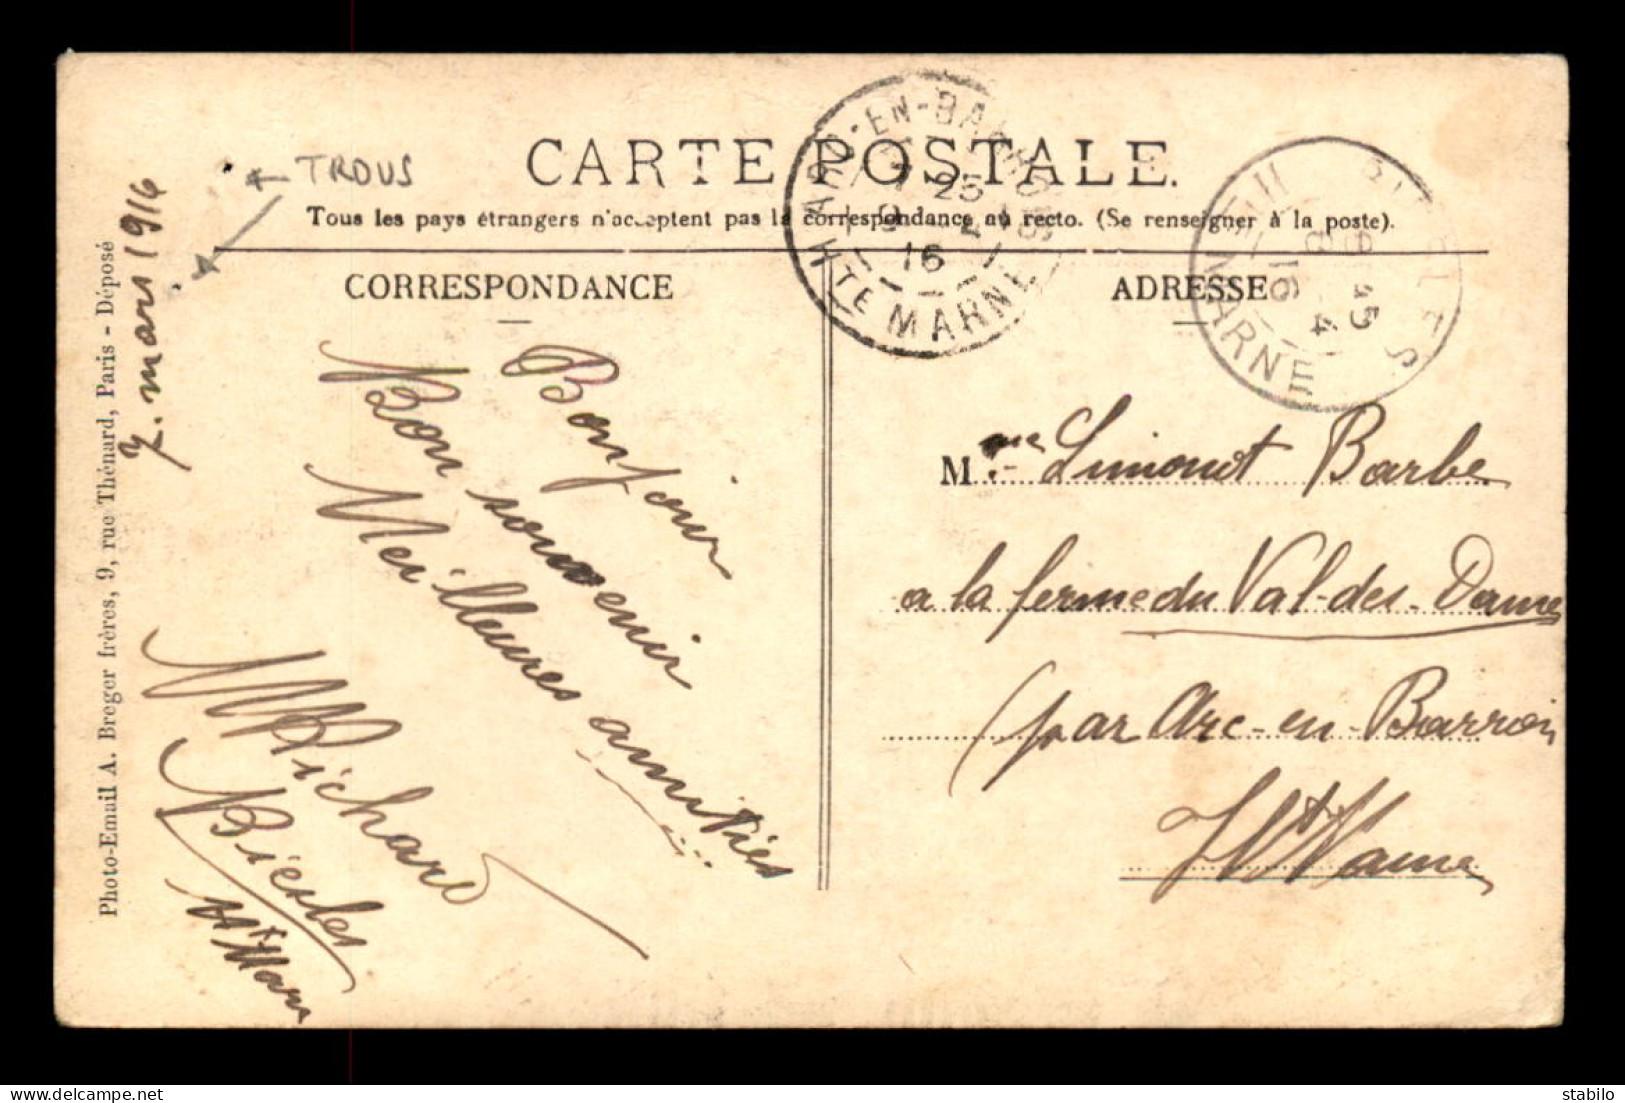 CARTE POSTALE.
Tous les pays étrangers n'acceptent pas la correspondance au recto. (Se renseigner à la poste).
TROUS
CORRESPONDANCE
mars 1916
Bonjour
Bon souvenir
Meilleures amitiés
Richard
Biesles
Hte Marne
Photo-Email A. Breger frères, 9, rue Thénard, Paris - Déposé
ARC-EN-BARROIS
25
16
HTE MARNE
BIESLES
45
4
16
HTE MARNE
ADRESSE
Mme Simonot Barbe
a la ferme du Val-des-Dames
(par Arc-en-Barrois
Hte Marne
stabilo